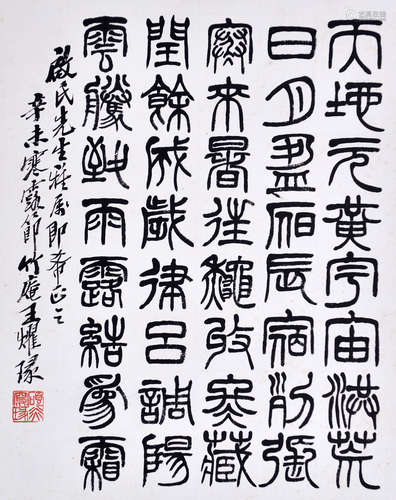 天地元黃宇宙洪荒
日月盈昃辰宿列張
寒來暑往秋收冬藏
閏餘成歲律呂調陽
雲騰致雨露結為霜
先生屬即希正之
辛未寒節竹庵王